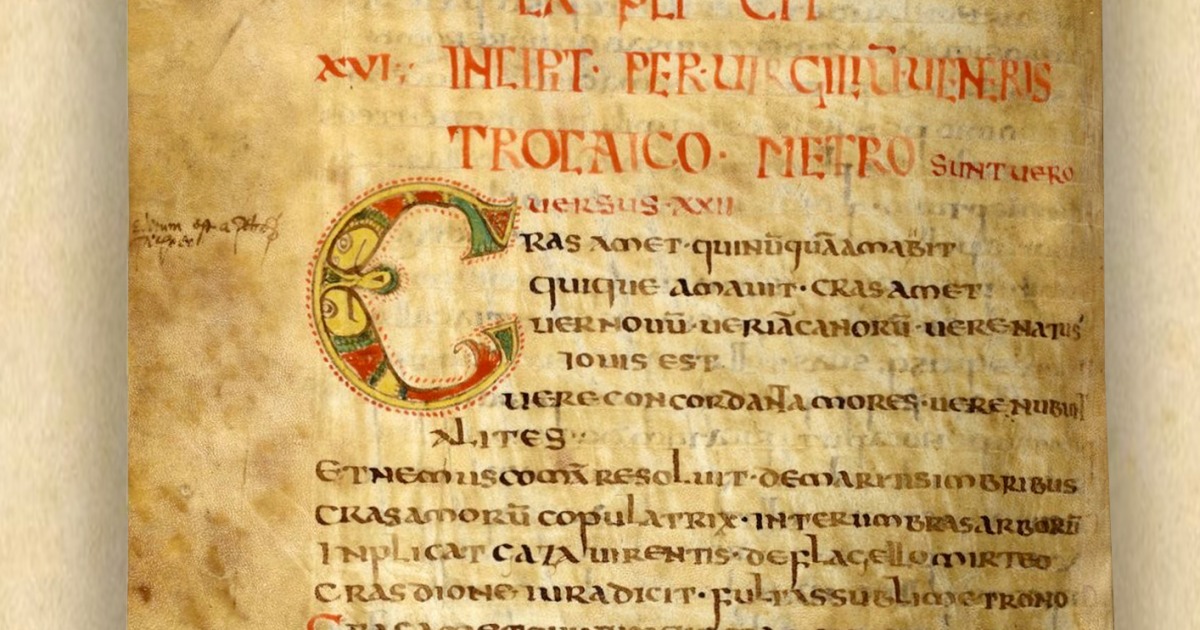 EX PLI CIT
XVI: INCIPIT· PER·UIRGILIŪ·UENERIS
TROCAICO· METRO SUNT UERO
UERSUS·XXII
CRAS AMET·quinūquāamabit
quique amauit·crasamet
uernouū·ueriācanorū·uerenatus
iouis est
uereconcordant amores·uere nubunt
alites
Etnemuscomā resoluit·demaritisimbribus
Crasamorū copulatrix·interumbrasarborū
Inplicat caza uirentis·deflagello mirteo
Crasdione iuradicit·fultassublimetrono